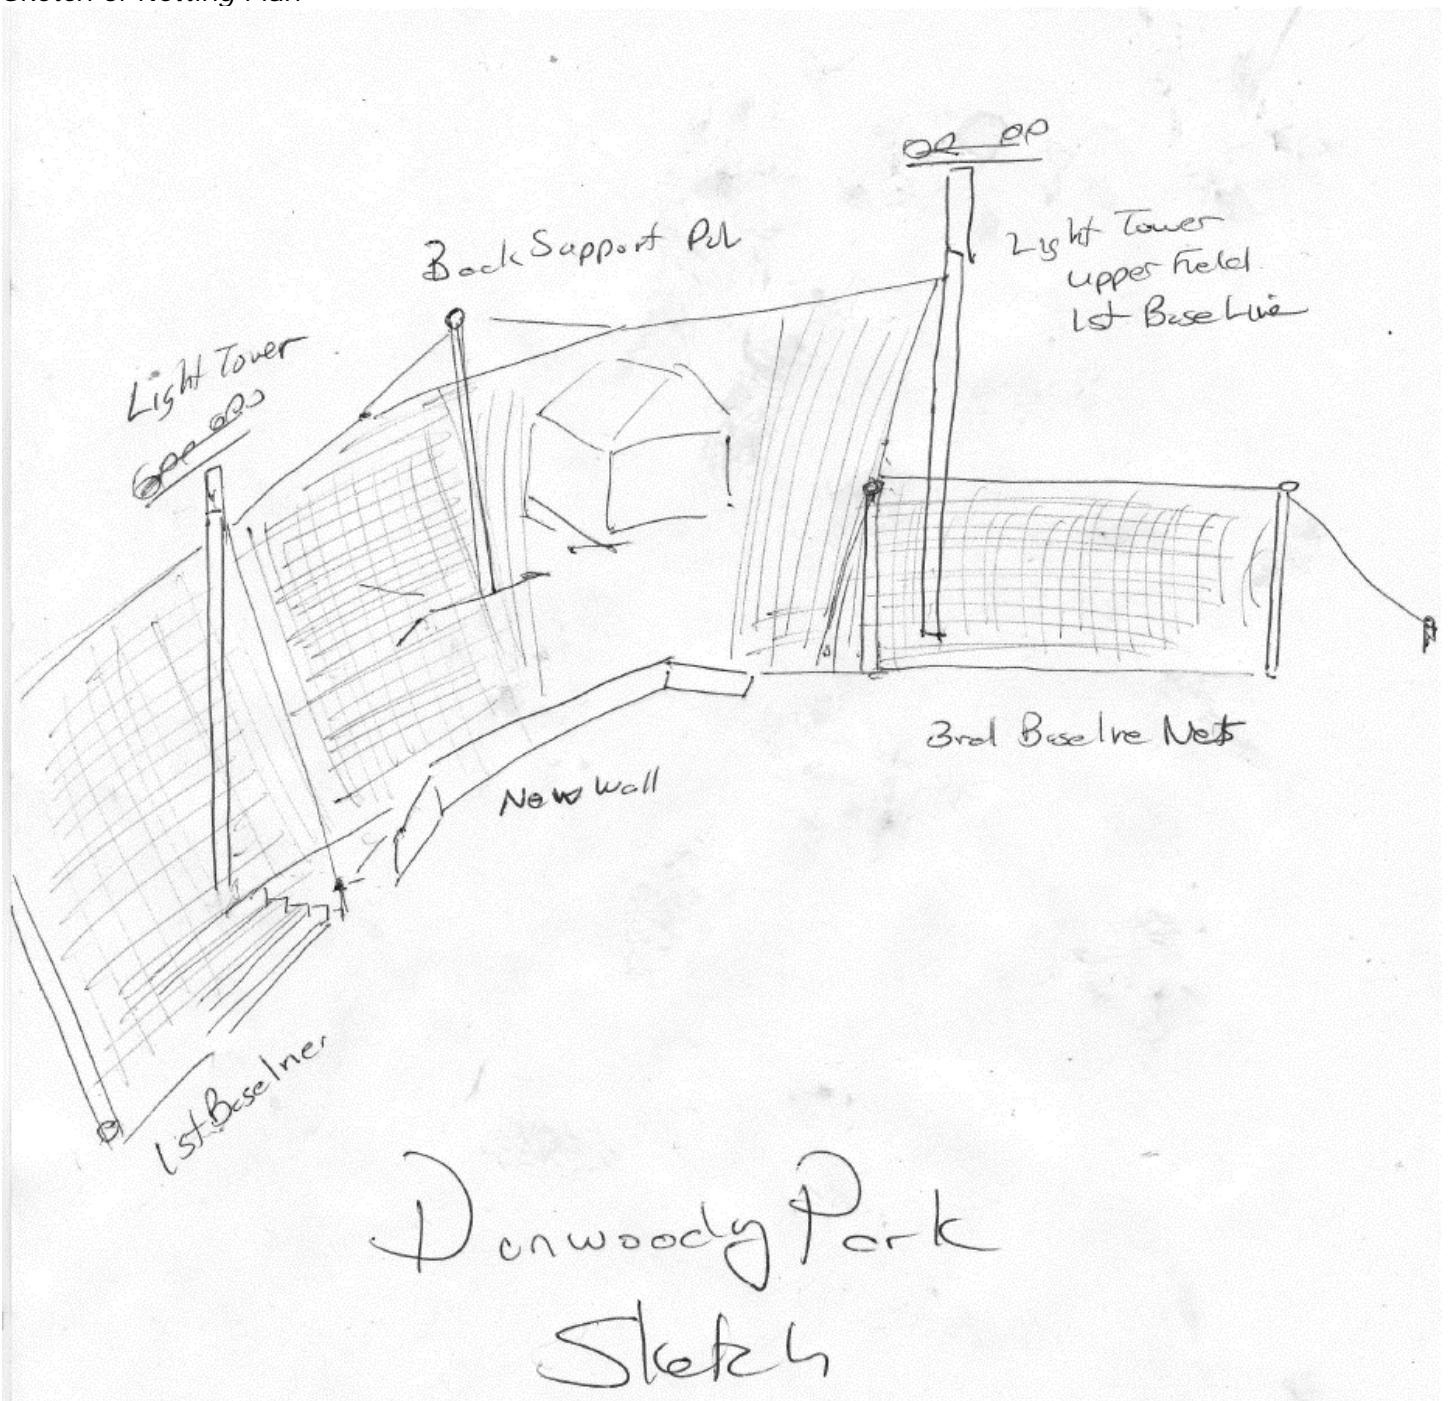 Sketch of Netting Plan
Back Support Pol
Light Tower
Upper Field
1st Base Line
Light Tower
3rd Baseline Nets
New Wall
1st Baseline
Dunwoody Park
Sketch